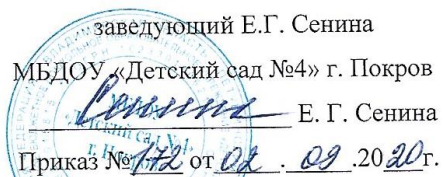 заведующий Е.Г. Сенина
МБДОУ «Детский сад №4» г. Покров
Е. Г. Сенина
Приказ №172 от 02 . 09 .2020г.